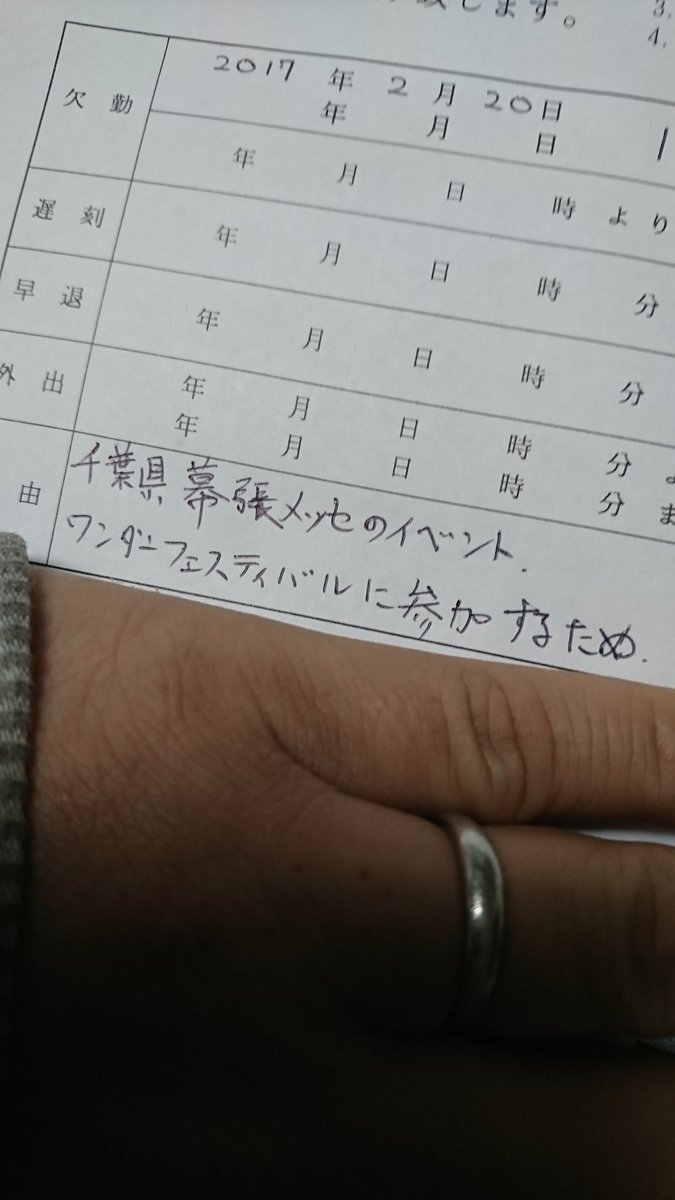 致します。
3.
4.
欠勤 2017年 2月 20日 1
年 月 日
年 月 日 時 より
遅刻 年 月 日 時 分
早退 年 月 日 時 分
外出 年 月 日 時 分 よ
年 月 日 時 分 ま
由 千葉県幕張メッセのイベント.
ワンダーフェスティバルに参加するため.